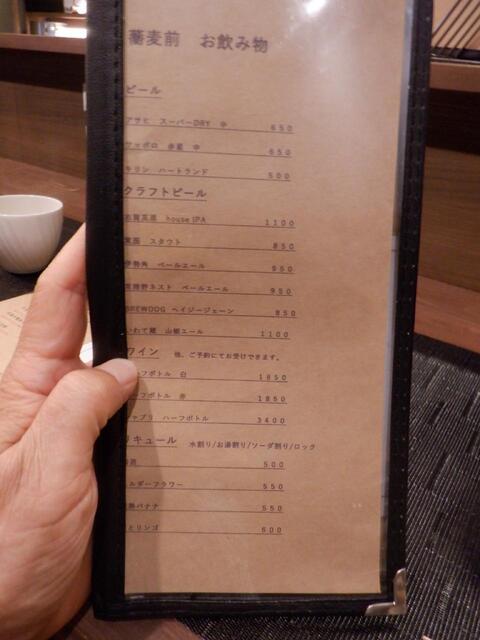 蕎麦前 お飲み物
ビール
アサヒ スーパーDRY 中 650
サッポロ 赤星 中 650
キリン ハートランド 500
クラフトビール
志賀高原 house IPA 1100
箕面 スタウト 850
伊勢角 ペールエール 950
常陸野ネスト ペールエール 950
BREWDOG ヘイジージェーン 850
いわて蔵 山椒エール 1100
ワイン 他、ご予約にてお受けできます。
ーフボトル 白 1850
ーフボトル 赤 1850
シャブリ ハーフボトル 3400
リキュール 水割り/お湯割り/ソーダ割り/ロック
500
エルダーフラワー 550
熟バナナ 550
とリンゴ 600